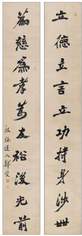 立德立言立功持身涉世
為慈為孝為友裕後光前